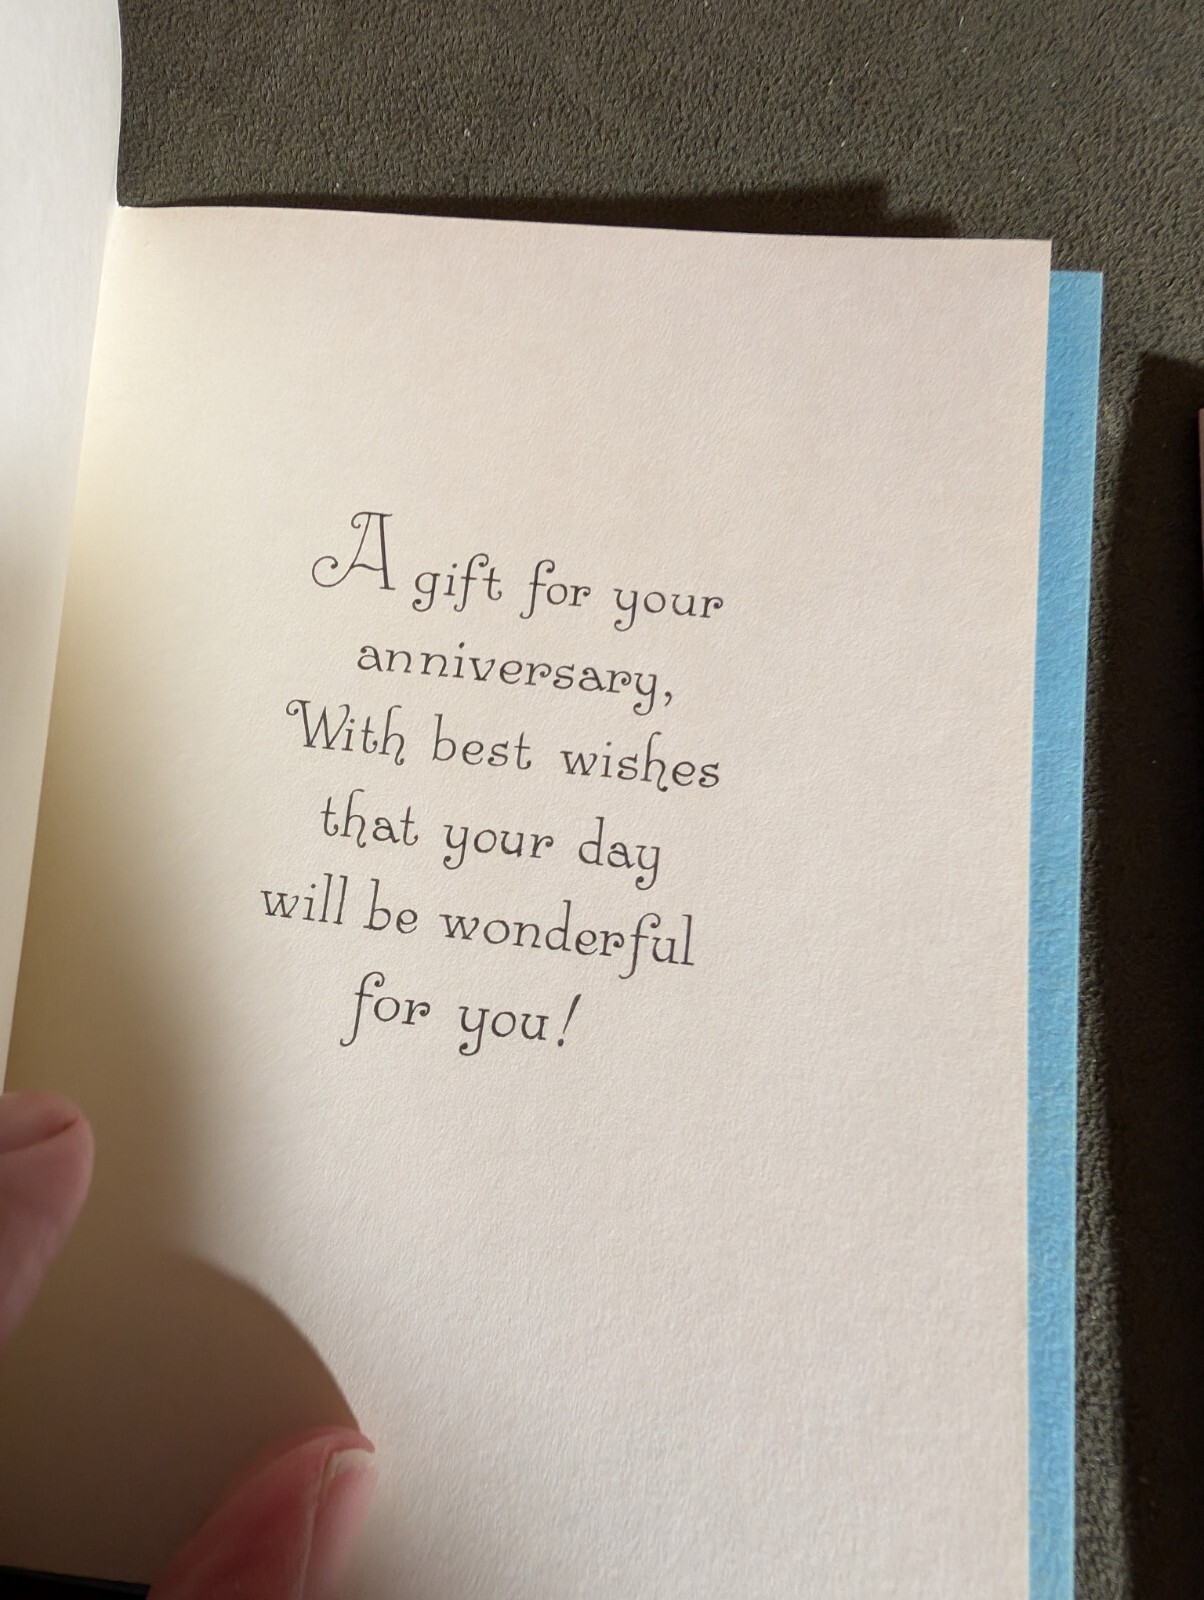 A gift for your
anniversary,
With best wishes
that your day
will be wonderful
for you!